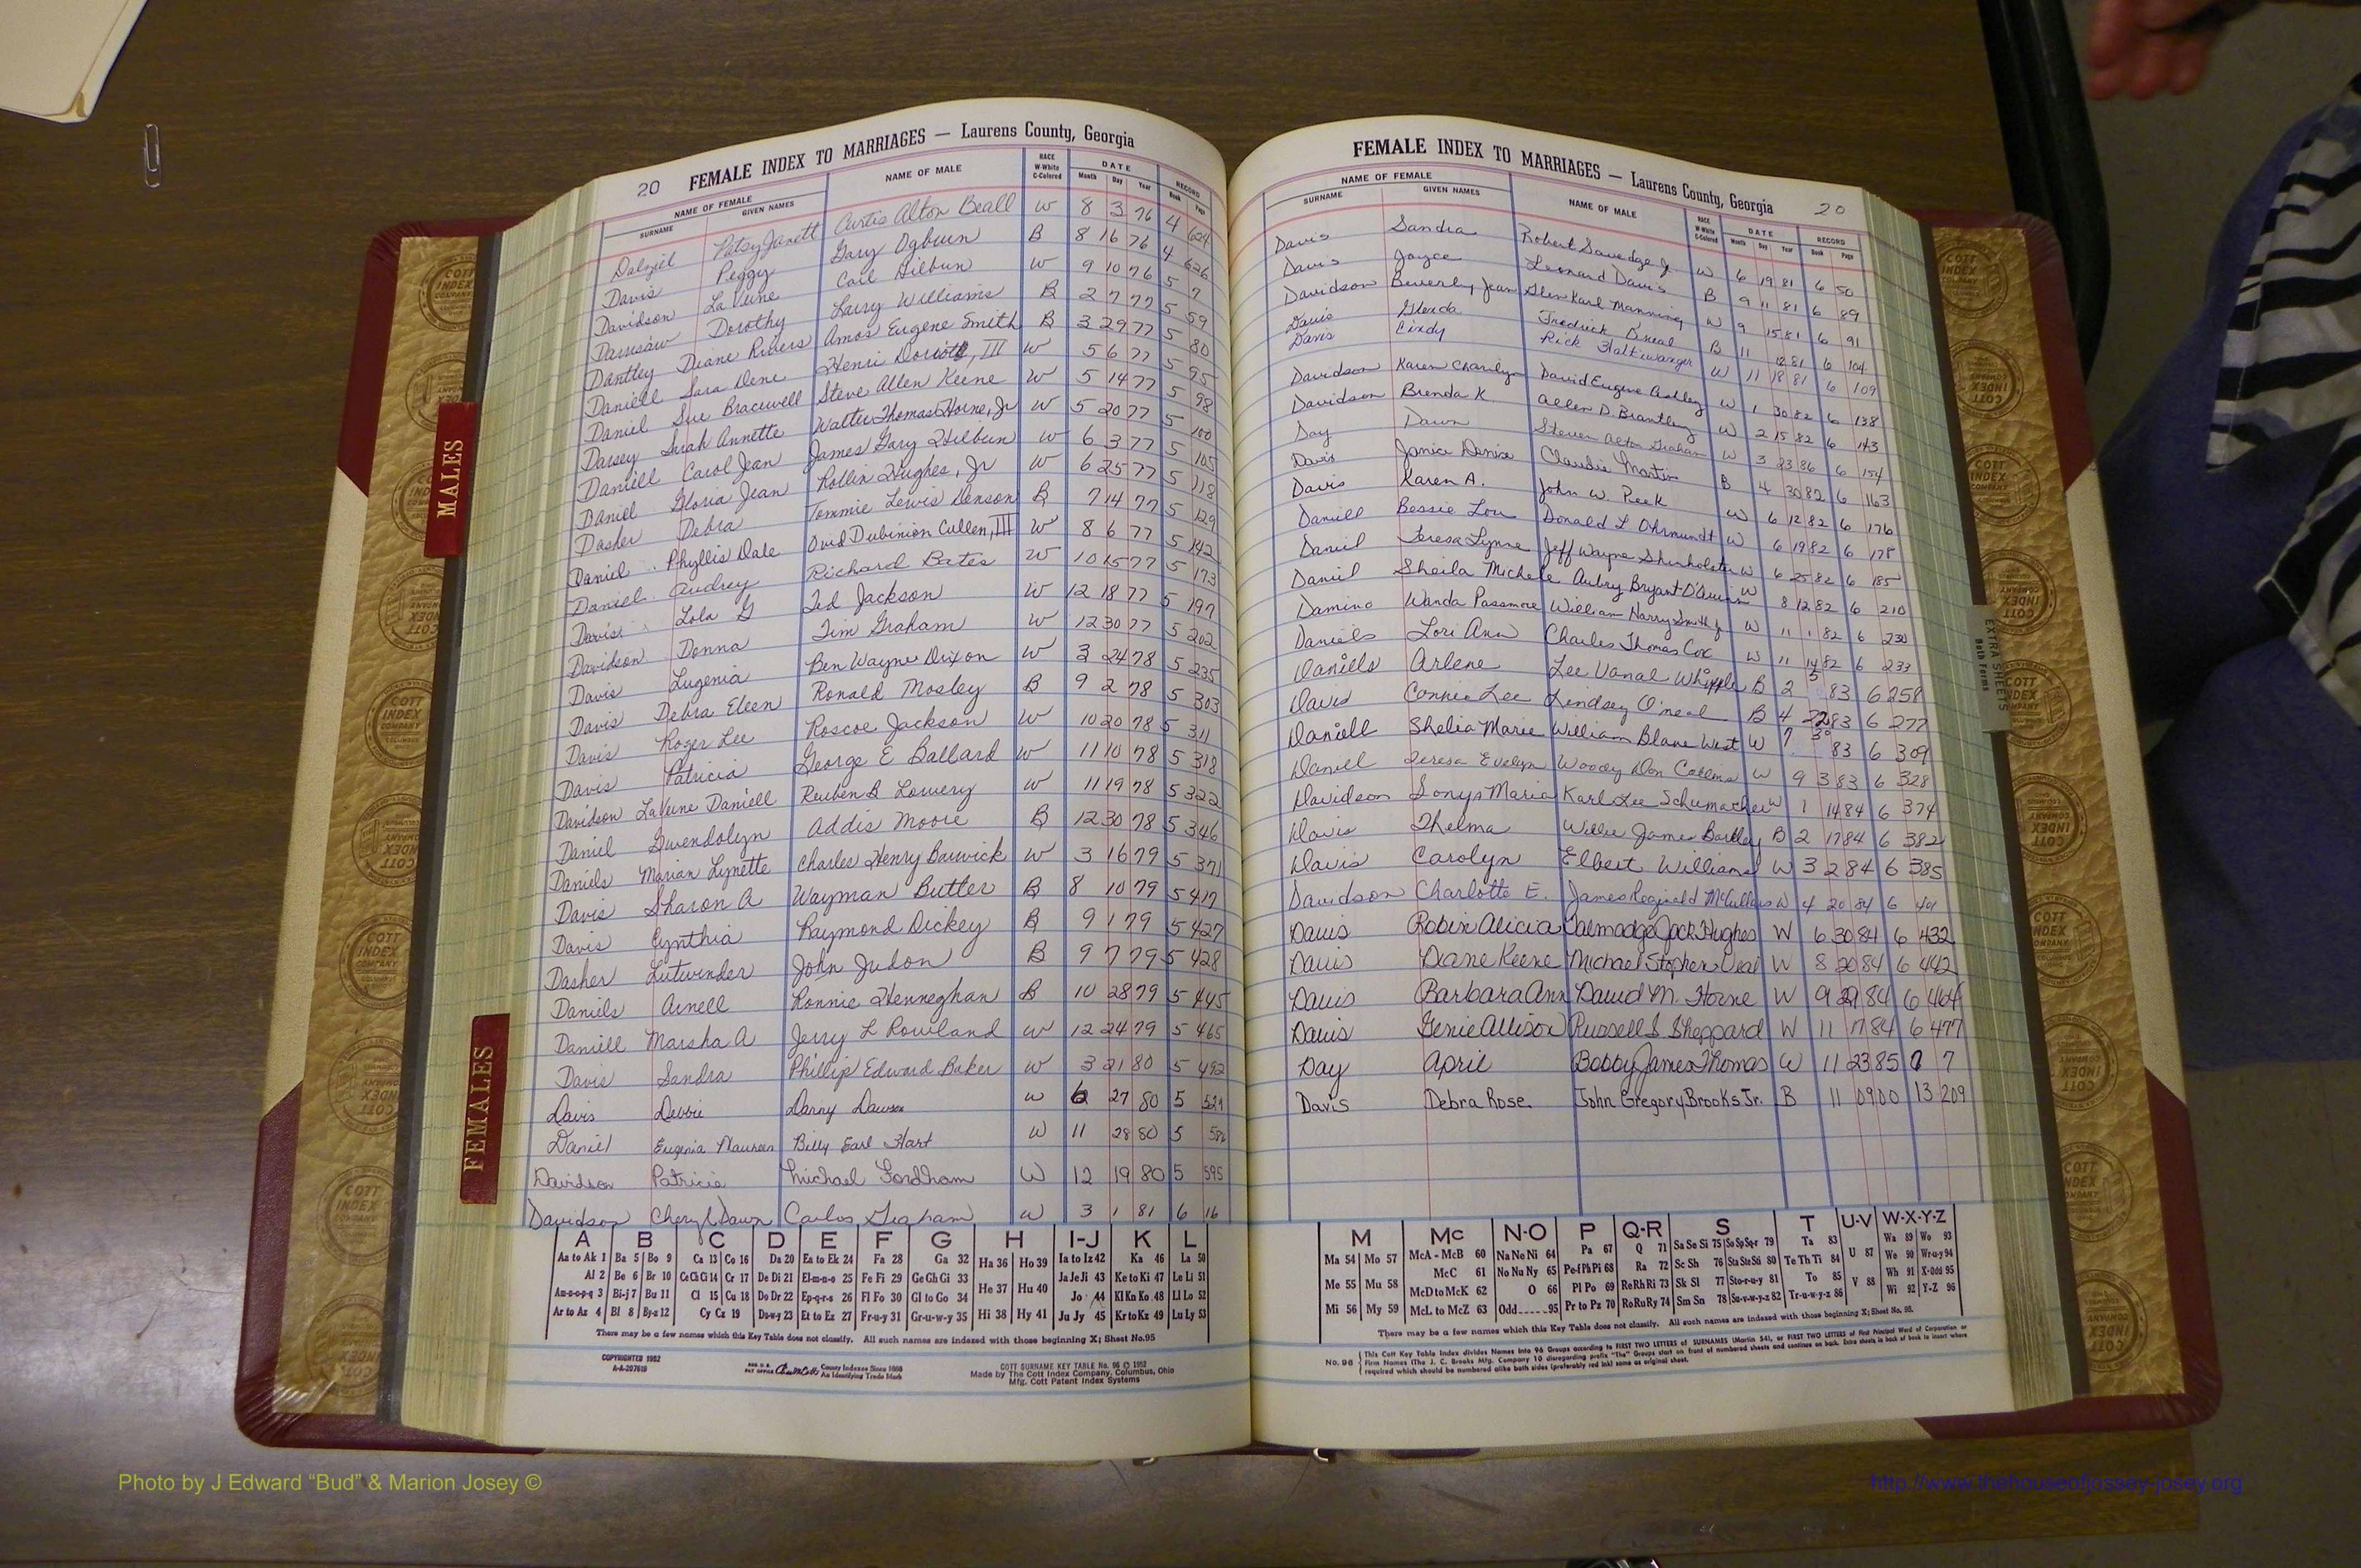 20 FEMALE INDEX TO MARRIAGES — Laurens County, Georgia
NAME OF FEMALE NAME OF MALE RACE W-White C-Colored DATE RECORD
SURNAME GIVEN NAMES Month Day Year Book Page
Dalziel Patsy Janett Curtis Alton Beall W 8 3 76 4 624
Davis Peggy Gary Ogburn B 8 16 76 4 626
Davidson LaVerne Coil Hilbun W 9 10 76 5 7
Dorothy Larry Williams B 2 7 77 5 59
Dantley Deane Rivers Amos Eugene Smith B 3 29 77 5 80
Daniell Sara Dene Henri III W 5 6 77 5 95
Daniel Sue Bracewell Steve Allen Keene W 5 14 77 5 98
Darsey Sarah Annette Walter Thomas Horne, Jr W 5 20 77 5 100
Daniell Carol Jean James Gary Hilbun W 6 3 77 5 105
Daniel Gloria Jean Rollin Hughes, Jr W 6 25 77 5 118
Dasher Debra Tommie Lewis Denson B 7 14 77 5 129
Daniel Phyllis Dale Ovid Dubinion Cullen, III W 8 6 77 5 142
Daniel Audrey Richard Bates W 10 15 77 5 173
Davis Lola G Ted Jackson W 12 18 77 5 197
Davidson Donna Tim Graham W 12 30 77 5 202
Davis Eugenia Ben Wayne Dixon W 3 24 78 5 235
Davis Debra Eleen Ronald Mosley B 9 2 78 5 303
Davis Roger Lee Roscoe Jackson W 10 20 78 5 311
Davis Patricia George E Ballard W 11 10 78 5 318
Davidson LaVerne Daniell Reuben B Lowery W 11 19 78 5 322
Daniel Gwendolyn Addis Moore B 12 30 78 5 346
Daniels Marian Lynette Charles Henry Barwick W 3 16 79 5 371
Davis Sharon A Wayman Butler B 8 10 79 5 417
Davis Cynthia Raymond Dickey B 9 1 79 5 427
Dasher Lutwinder John Judon B 9 7 79 5 428
Daniels Arnell Ronnie Henneghan B 10 28 79 5 445
Daniell Marsha A Jerry L Rowland W 12 24 79 5 465
Davis Sandra Phillip Edward Baker W 3 21 80 5 492
Davis Debbie Danny Dawson W 6 27 80 5
Daniel Eugenia Maureen Billy Earl Hart W 11 28 80 5
Davidson Patricia Michael Fordham W 12 19 80 5 595
Davidson Cheryl Dawn Carlos Graham W 3 1 81 6 16
A B C D E F G H I-J K L
Aa to Ak 1 Ba 5 Bo 9 Ca 13 Co 16 Da 20 Ea to Ek 24 Fa 28 Ga 32 Ha 36 Ho 39 Ia to Iz 42 Ka 46 La 50
Al 2 Be 6 Br 10 Ce Ch Ci 14 Cr 17 De Di 21 El-m-n-o 25 Fe Fi 29 Ge Gh Gi 33 He 37 Hu 40 Ja Je Ji 43 Ke to Ki 47 Le Li 51
Am-n-o-p-q 3 Bi-j 7 Bu 11 Cl 15 Cu 18 Do Dr 22 Ep-q-r-s 26 Fl Fo 30 Gl to Go 34 Jo 44 Kl Kn Ko 48 Ll Lo 52
Ar to Az 4 Bl 8 By-z 12 Cy Cz 19 Du-w-y 23 Et to Ez 27 Fr-u-y 31 Gr-u-w-y 35 Hi 38 Hy 41 Ju Jy 45 Kr to Kz 49 Lu Ly 53
There may be a few names which this Key Table does not classify. All such names are indexed with those beginning X; Sheet No. 95
COPYRIGHTED 1952
A-A-207619
County Indexes Since 1888
An Identifying Trade Mark
COTT SURNAME KEY TABLE No. 96 © 1952
Made by The Cott Index Company, Columbus, Ohio
Mfg. Cott Patent Index Systems
FEMALE INDEX TO MARRIAGES — Laurens County, Georgia 20
NAME OF FEMALE NAME OF MALE RACE W-White C-Colored DATE RECORD
SURNAME GIVEN NAMES Month Day Year Book Page
Davis Sandra Robert Sawedge Jr. W 6 19 81 6 50
Davis Joyce Leonard Davis B 9 11 81 6 89
Davidson Beverly Jean Glen Karl Manning W 9 15 81 6 91
Davis Glenda Fredrick Oneal B 11 12 81 6 104
Davis Cindy Rick Haltiwanger W 11 18 81 6 109
Davidson Karen Charilyn David Eugene Ashley W 1 30 82 6 138
Davidson Brenda K Allen D. Brantley W 2 15 82 6 143
Day Dawn Steven Alton Graham W 3 23 86 6 154
Davis Janice Denise Claudie Martin B 4 30 82 6 163
Davis Karen A. John W. Peek W 6 12 82 6 176
Daniell Bessie Lou Donald L Ohrmundt W 6 19 82 6 178
Daniel Teresa Lynne Jeff Wayne Shinholster W 6 25 82 6 185
Daniel Sheila Michele Aubry Bryant W 8 12 82 6 210
Damino Wanda Passmore William Harry Smith Jr W 11 1 82 6 230
Daniels Lori Ann Charles Thomas Cox W 11 14 82 6 233
Daniels Arlene Lee Vanal Whipple B 2 5 83 6 258
Davis Connie Lee Lindsey O'neal B 4 22 83 6 277
Daniell Shelia Marie William Blane West W 7 30 83 6 309
Daniel Teresa Evelyn Woody Don Collins W 9 3 83 6 328
Davidson Sonya Maria Karl Lee Schumacher W 1 14 84 6 374
Davis Thelma Willie James Bartley B 2 17 84 6 382
Davis Carolyn Elbert Williams W 3 2 84 6 385
Davidson Charlotte E. James Reginald McCullars W 4 20 84 6 401
Davis Robin Alicia Talmadge Jack Hughes W 6 30 84 6 432
Davis Diane Keene Michael Stephen Veal W 8 20 84 6 442
Davis Barbara Ann David M. Horne W 9 21 84 6 464
Davis Genie Allison Russell S Sheppard W 11 17 84 6 477
Day April Bobby James Thomas W 11 23 85 7 7
Davis Debra Rose John Gregory Brooks Jr. B 11 09 00 13 209
M Mc N-O P Q-R S T U-V W-X-Y-Z
Ma 54 Mo 57 McA - McB 60 Na Ne Ni 64 Pa 67 Q 71 Sa Se Si 75 So Sp Sq-r 79 Ta 83 U 87 Wa 89 Wo 93
McC 61 No Nu Ny 65 Pe-f Ph Pi 68 Ra 72 Sc Sh 76 Sta Ste Sti 80 Te Th Ti 84 We 90 Wr-u-y 94
Me 55 Mu 58 McD to McK 62 O 66 Pl Po 69 Re Rh Ri 73 Sk Sl 77 Sto-r-u-y 81 To 85 V 88 Wh 91 X-Odd 95
Mi 56 My 59 McL to McZ 63 Odd 95 Pr to Pz 70 Ro Ru Ry 74 Sm Sn 78 Su-v-w-y-z 82 Tr-u-w-y-z 86 Wi 92 Y-Z 96
There may be a few names which this Key Table does not classify. All such names are indexed with those beginning X; Sheet No. 95.
No. 96 This Cott Key Table Index divides Names into 96 Groups according to FIRST TWO LETTERS of SURNAMES (Martin 54), or FIRST TWO LETTERS of First Principal Word of Corporation or
Firm Names (The J. C. Brooks Mfg. Company 10 disregarding prefix "The" Groups start on front of numbered sheets and continue on back. Extra sheets in back of book to insert where
required which should be numbered alike both sides (preferably red ink) same as original sheet.
MALES
FEMALES
EXTRA SHEETS
Both Forms
COTT INDEX COMPANY
Photo by J Edward “Bud” & Marion Josey ©
http://www.thehouseofjossey-josey.org